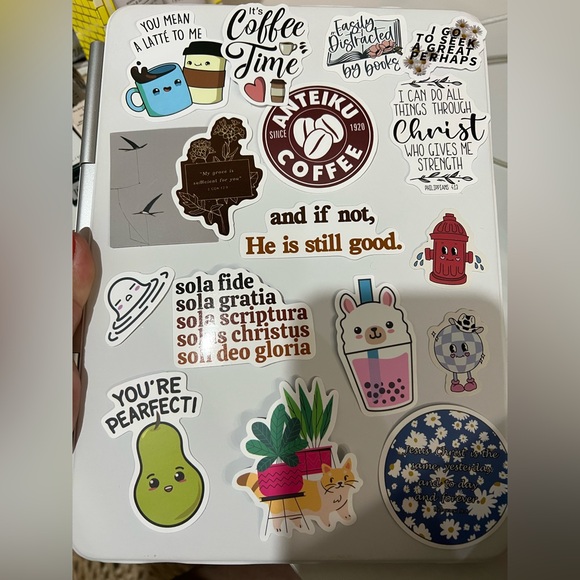 YOU MEAN
A LATTÉ TO ME
It's
Coffee
Time
Easily
Distracted
by books
I GO
TO SEEK
A GREAT
PERHAPS
ANTEIKU
SINCE 1920
COFFEE
I CAN DO ALL
THINGS THROUGH
Christ
WHO GIVES ME
STRENGTH
PHILIPPIANS 4:13
"My grace is
sufficient for you"
and if not,
He is still good.
sola fide
sola gratia
sola scriptura
solus christus
soli deo gloria
YOU'RE
PEARFECT!
Jesus Christ is the
same yesterday
and to day
and forever